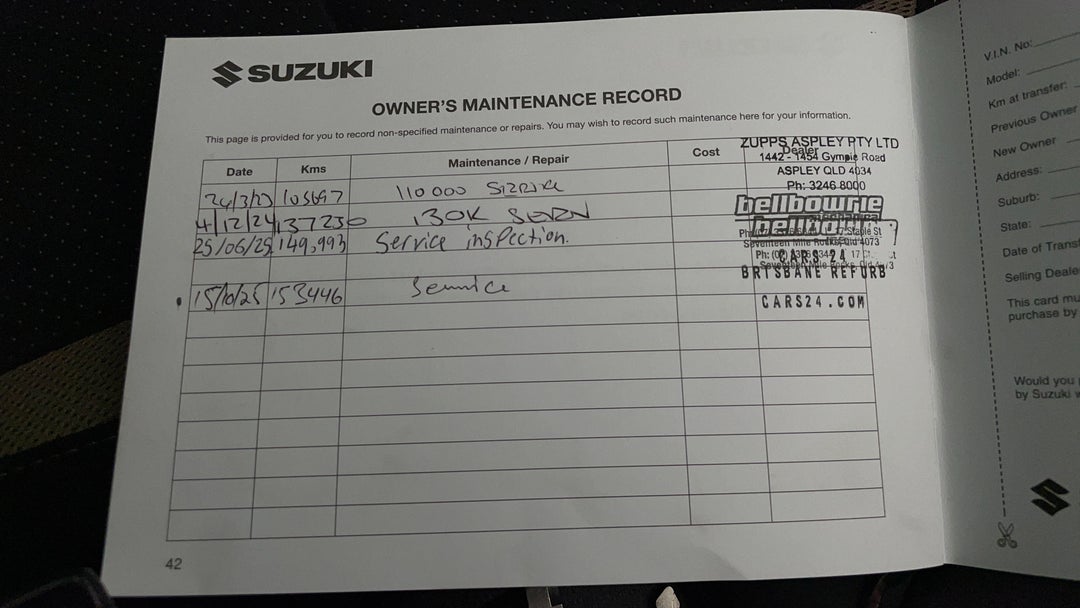 SUZUKI
OWNER'S MAINTENANCE RECORD
This page is provided for you to record non-specified maintenance or repairs. You may wish to record such maintenance here for your information.
Date Kms Maintenance / Repair Cost Dealer
ZUPPS ASPLEY PTY LTD
1442 - 1454 Gympie Road
ASPLEY QLD 4034
Ph: 3246 8000
24/3/23 105697 110 000 SERVICE
bellbowrie
4/12/24 137230 130K SERV
25/06/25 149,993 Service inspection.
Seventeen Mile Rocks Qld 4073
CARS 24
BRISBANE REFURB
15/10/25 153446 Service
CARS24.COM
42
V.I.N. No:
Model:
Km at transfer:
Previous Owner
New Owner
Address:
Suburb:
State:
Date of Trans
Selling Deale
This card mu
purchase by
Would you
by Suzuki w